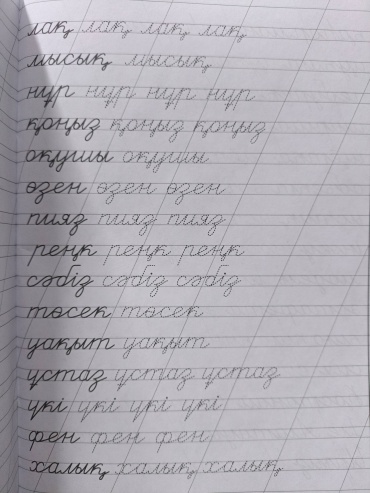 лақ лақ лақ лақ
мысық мысық
нұр нұр нұр нұр
қоңыз қоңыз қоңыз
оқушы оқушы
өзен өзен өзен
пияз пияз пияз
реңк реңк реңк
сәбіз сәбіз сәбіз
төсек төсек
уақыт уақыт
ұстаз ұстаз ұстаз
үкі үкі үкі үкі
фен фен фен
халық халық халық